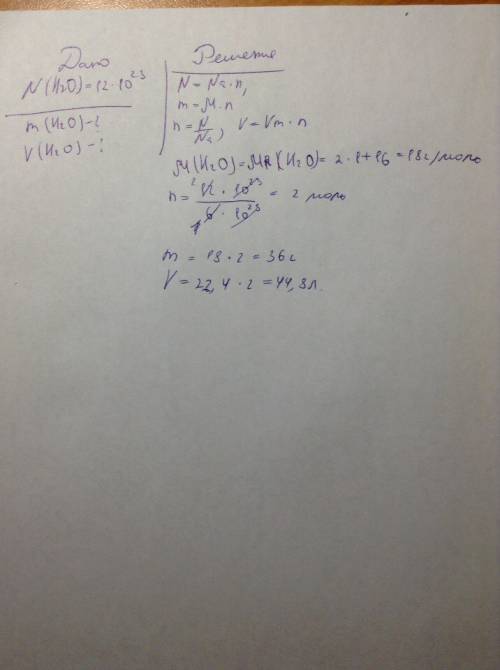 Дано
N(H₂O)=12·10²³
m(H₂O)-?
V(H₂O)-?
Решение
N=Na·n,
m=M·n
n=N/Na, V=Vm·n
M(H₂O)=Mr(H₂O)=2·1+16=18г/моль
n=12·10²³/6·10²³=2 моль
m=18·2=36г
V=22,4·2=44,8л.